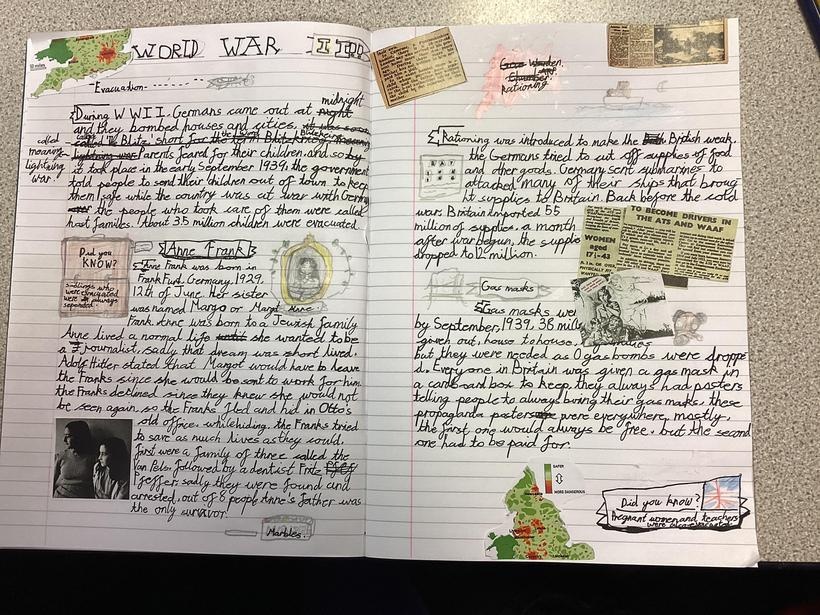 WORLD WAR II
Evacuation
midnight
During WWII, Germans came out at night
and they bombed houses and cities, it was soon
called 'The Blitz', short for the term Blitzkrieg
called
meaning
lightning
war.
lightning war Parents feared for their children, and so
it took place in the early September 1939, the government
told people to send their children out of town to keep
them safe while the country was at war with Germany
the people who took care of them were called
host families. About 3.5 million children were evacuated.
Did you
KNOW?
siblings who
were evacuated
were always
separated
Anne Frank
Anne Frank was born in
FrankFurt, Germany, 1929,
12th of June. Her sister
was named Margo or Margot Anne
Frank. Anne was born to a Jewish family
Anne lived a normal life she wanted to be
a journalist, sadly that dream was short lived.
Adolf Hitler stated that Margot would have to leave
the Franks since she would be sent to work for him.
the Franks declined since they knew she would not
be seen again, so the Franks fled and hid in Otto's
old office. while hiding, the Franks tried
to save as much lives as they could.
first were a family of three called the
Van Pels. followed by a dentist Fritz
Pfeffer. sadly they were found and
arrested, out of 8 people Anne's father was
the only survivor!
Marbles
Warden
Rationing
Rationing was introduced to make the British weak.
the Germans tried to cut off supplies of food
and other goods. Germany sent submarines to
attacked many of their ships that broug
ht supplies to Britain. Back before the cold
war. Britain imported 55
million of supplies, a month
after war begun, the supplie
dropped to 12 million.
TO BECOME DRIVERS IN
THE ATS AND WAAF
WOMEN
aged
17½-43
Gas masks
Gas masks we
by September, 1939, 38 milli
given out, house to house,
but they were needed as 0 gas bombs were droppe
d. Everyone in Britain was given a gas mask in
a cardboard box to keep, they always had posters
telling people to always bring their gas masks, these
propaganda posters were everywhere, mostly.
the first one would always be free, but the second
one had to be paid for.
SAFER
MORE DANGEROUS
Did you know?
Pregnant women and teachers
were also evacuated